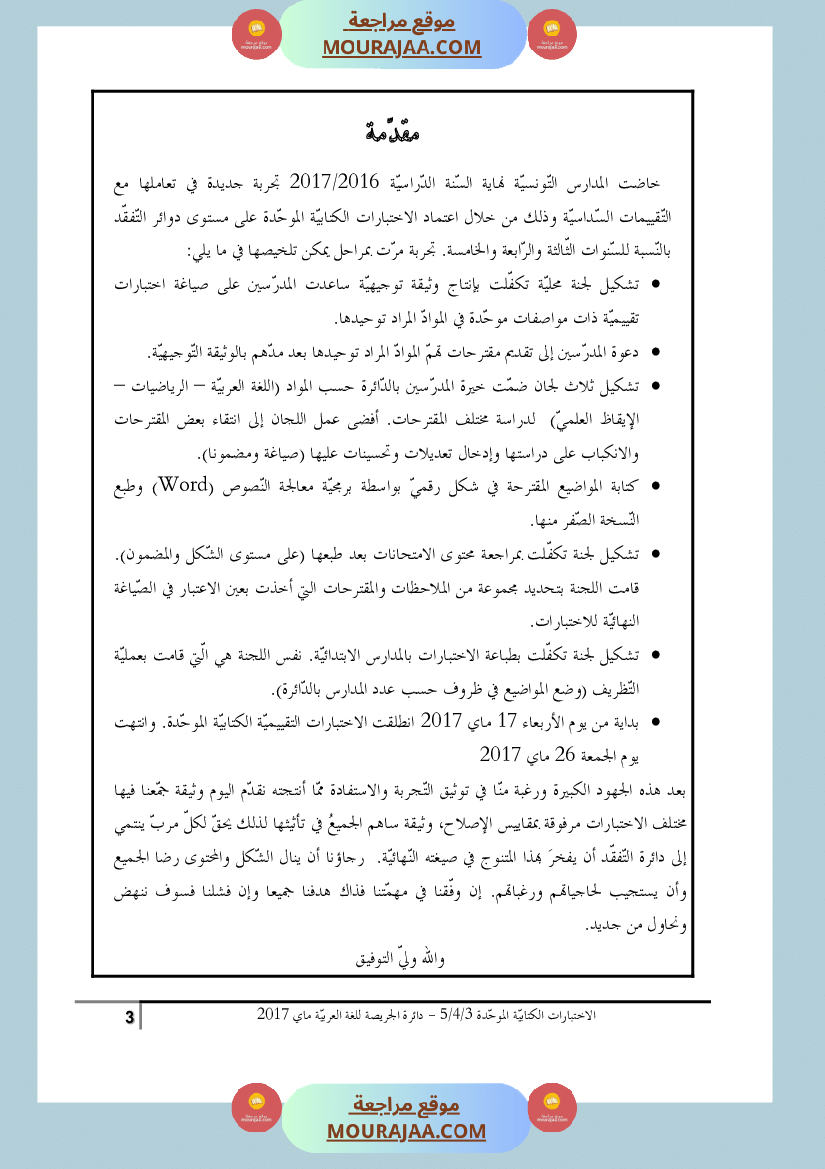 موقع مراجعة
MOURAJAA.COM
مقدّمة
خاضت المدارس التّونسيّة نهاية السّنة الدّراسيّة 2017/2016 تجربة جديدة في تعاملها مع
التّقييمات السّداسيّة وذلك من خلال اعتماد الاختبارات الكتابيّة الموحّدة على مستوى دوائر التّفقّد
بالنّسبة للسّنوات الثّالثة والرّابعة والخامسة. تجربة مرّت بمراحل يمكن تلخيصها في ما يلي:
● تشكيل لجنة محليّة تكفّلت بإنتاج وثيقة توجيهيّة ساعدت المدرّسين على صياغة اختبارات
تقييميّة ذات مواصفات موحّدة في الموادّ المراد توحيدها.
● دعوة المدرّسين إلى تقديم مقترحات تهمّ الموادّ المراد توحيدها بعد مدّهم بالوثيقة التّوجيهيّة.
● تشكيل ثلاث لجان ضمّت خيرة المدرّسين بالدّائرة حسب المواد (اللغة العربيّة – الرياضيات –
الإيقاظ العلميّ) لدراسة مختلف المقترحات. أفضى عمل اللجان إلى انتقاء بعض المقترحات
والانكباب على دراستها وإدخال تعديلات وتحسينات عليها (صياغة ومضمونا).
● كتابة المواضيع المقترحة في شكل رقميّ بواسطة برمجيّة معالجة النّصوص (Word) وطبع
النّسخة الصّفر منها.
● تشكيل لجنة تكفّلت بمراجعة محتوى الامتحانات بعد طبعها (على مستوى الشّكل والمضمون).
قامت اللجنة بتحديد مجموعة من الملاحظات والمقترحات التي أخذت بعين الاعتبار في الصّياغة
النهائيّة للاختبارات.
● تشكيل لجنة تكفّلت بطباعة الاختبارات بالمدارس الابتدائيّة. نفس اللجنة هي الّتي قامت بعمليّة
التّظريف (وضع المواضيع في ظروف حسب عدد المدارس بالدّائرة).
● بداية من يوم الأربعاء 17 ماي 2017 انطلقت الاختبارات التقييميّة الكتابيّة الموحّدة. وانتهت
يوم الجمعة 26 ماي 2017
بعد هذه الجهود الكبيرة ورغبة منّا في توثيق التّجربة والاستفادة ممّا أنتجته نقدّم اليوم وثيقة جمّعنا فيها
مختلف الاختبارات مرفوقة بمقاييس الإصلاح، وثيقة ساهم الجميعُ في تأثيثها لذلك يحقّ لكلّ مربّ ينتمي
إلى دائرة التّفقّد أن يفخرَ بهذا المتنوج في صيغته النّهائيّة. رجاؤنا أن ينال الشّكل والمحتوى رضا الجميع
وأن يستجيب لحاجياتهم ورغباتهم. إن وفّقنا في مهمّتنا فذاك هدفنا جميعا وإن فشلنا فسوف ننهض
ونحاول من جديد.
والله وليّ التوفيق
الاختبارات الكتابيّة الموحّدة 5/4/3 – دائرة الجريصة للغة العربيّة ماي 2017
3
موقع مراجعة
MOURAJAA.COM